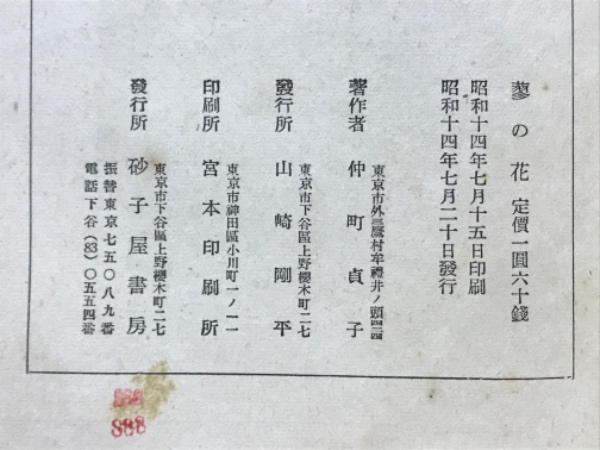 蓼の花 定價一圓六十錢
昭和十四年七月十五日印刷
昭和十四年七月二十日發行
東京市外三鷹村牟禮井ノ頭四四
著作者 仲町貞子
東京市下谷區上野櫻木町二七
發行所 山崎剛平
東京市神田區小川町一ノ一一
印刷所 宮本印刷所
東京市下谷區上野櫻木町二七
發行所 砂子屋書房
振替東京七五〇八九番
電話下谷(83)〇五五四番
888